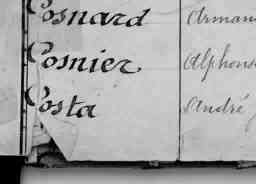 Cosnard Arman
Cosnier Alphons
Costa André